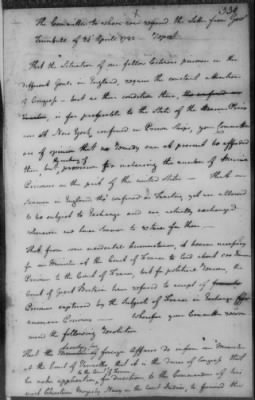 339
The Committee to whom was referred the Letter from Govr
Trumbull of 25 April 1782 Report
That the Situation of our fellow Citizens prisoners in the
different Goals in England, require the constant attention
of Congress — but as their condition there,
is far preferable to the State of the Prisoners
at New York, confined in Prison Ships, your Committee
are of opinion that no Remedy can at present be afforded
them, but by making provision for increasing the number of
Prisoners on the part of the united States — That
Seamen in England tho' confined as Traitors, yet are allowed
to be subject to Exchange and are actually exchanged
whenever we have Seamen to return for them —
That from some accidental Circumstances, it became necessary
for our Minister at the Court of France to send about
Prisoners to the Court of France, but for political Reasons, the
Court of Great Britain have refused to accept of
Prisoners captured by the Subjects of France in Exchange for
american Prisoners — Wherefore your Committee recom
mend the following Resolution
That the Secretary for foreign Affairs do inform our Minister
at the Court of Versailles that it is the Desire of Congress that
he make application, to the Court of France for direction to the Commanders of his
most Christian Majesty's Navy in the West Indies, to forward the